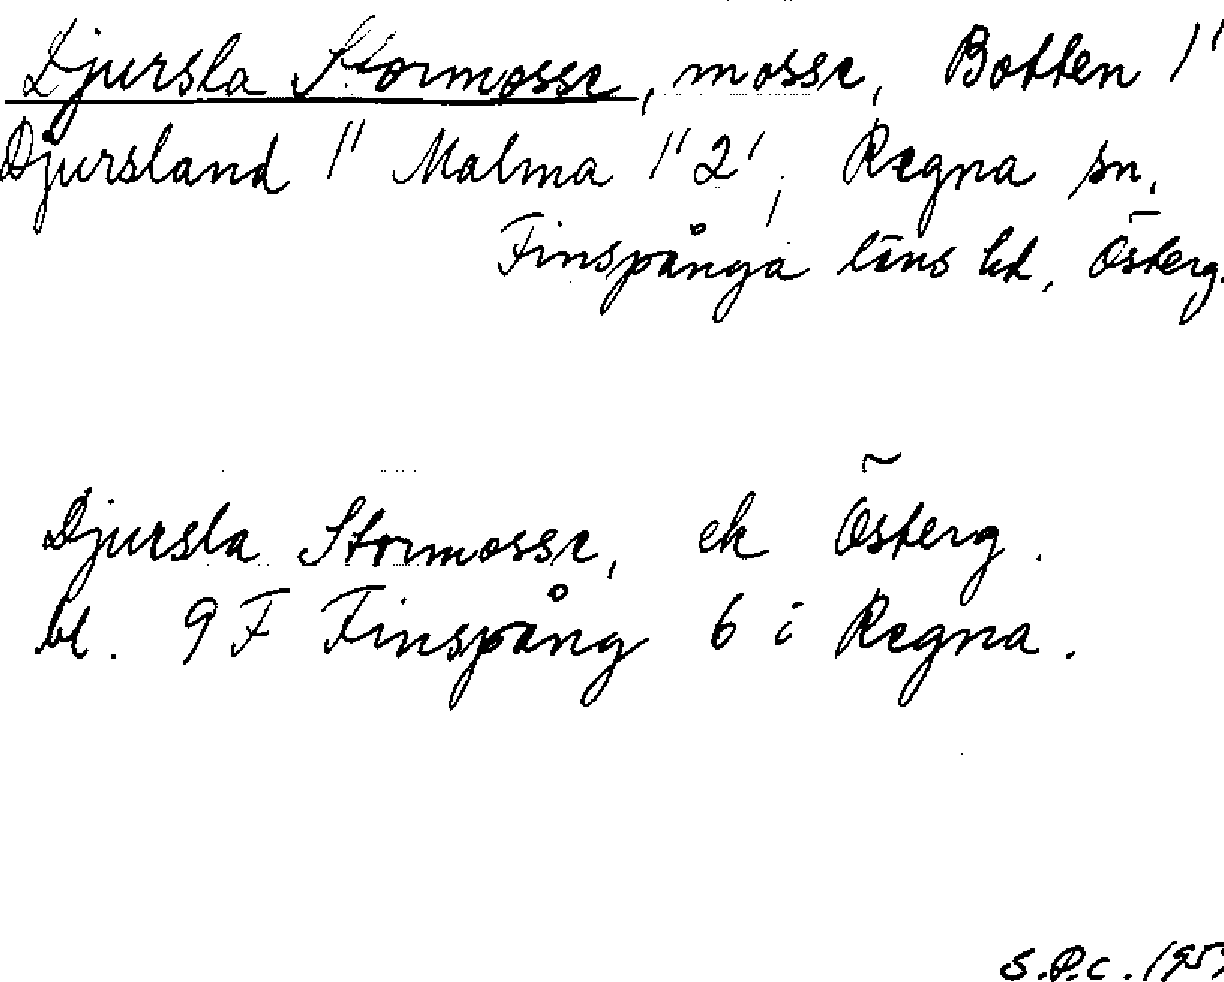 Djursla Stormosse, mosse, Botten 1'
Djursland 1' Malma 1' 2', Regna sn.
Finspånga läns hd, Österg.
Djursla Stormosse, ek Österg.
bl. 9F Finspång 6 i Regna.
S.P.C.